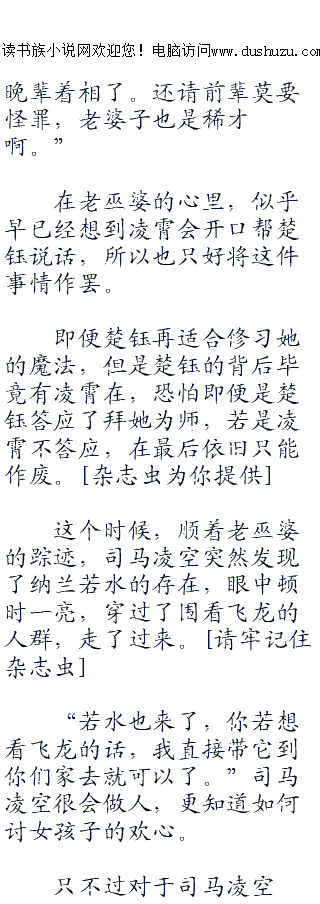 读书族小说网欢迎您！电脑访问www.dushuzu.com
晚辈着相了。还请前辈莫要
怪罪，老婆子也是稀才
啊。”
在老巫婆的心里，似乎
早已经想到凌霄会开口帮楚
钰说话，所以也只好将这件
事情作罢。
即便楚钰再适合修习她
的魔法，但是楚钰的背后毕
竟有凌霄在，恐怕即便是楚
钰答应了拜她为师，若是凌
霄不答应，在最后依旧只能
作废。[杂志虫为你提供]
这个时候，顺着老巫婆
的踪迹，司马凌空突然发现
了纳兰若水的存在，眼中顿
时一亮，穿过了围看飞龙的
人群，走了过来。[请牢记住
杂志虫]
“若水也来了，你若想
看飞龙的话，我直接带它到
你们家去就可以了。”司马
凌空很会做人，更知道如何
讨女孩子的欢心。
只不过对于司马凌空